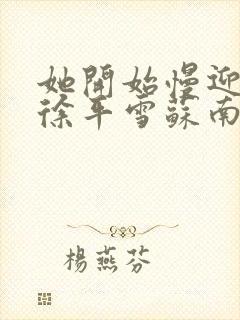 她開始慢迎
徐平雪蘇南
楊燕芬